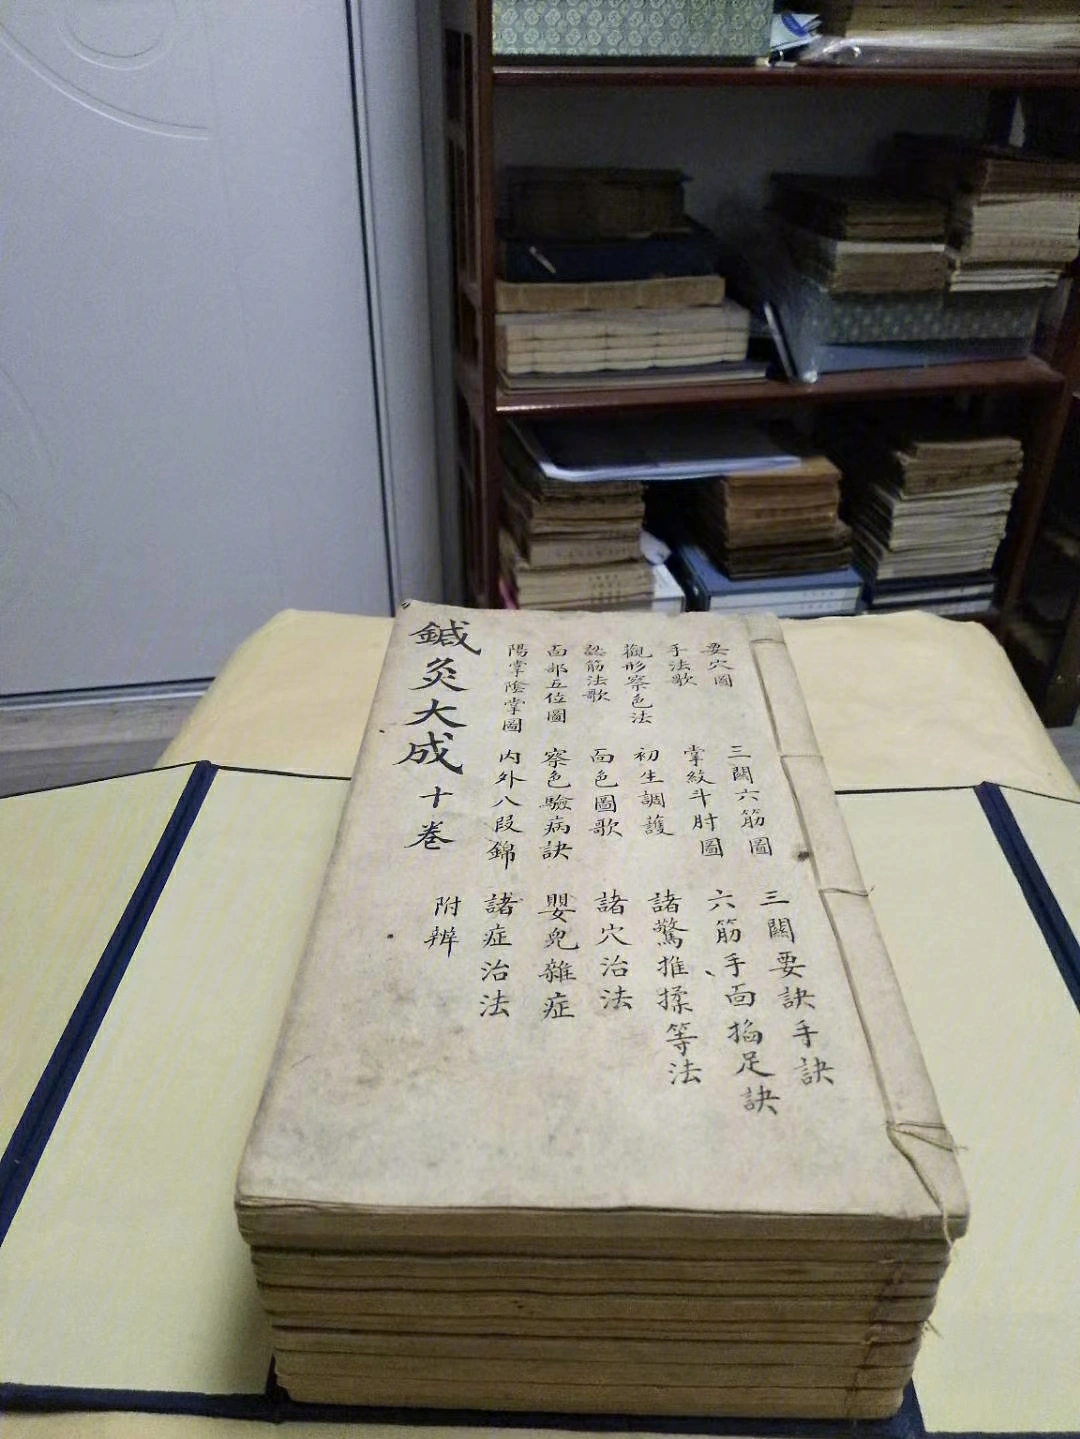 要穴圖 三關六筋圖 三關要訣手訣
手法歌 掌紋斗肘圖 六筋手面掐足訣
觀形察色法 初生調護 諸驚推揉等法
認筋法歌 面色圖歌 諸穴治法
面部五位圖 察色驗病訣 嬰兒雜症
陽掌陰掌圖 内外八段錦 諸症治法
鍼灸大成 十卷 附辨